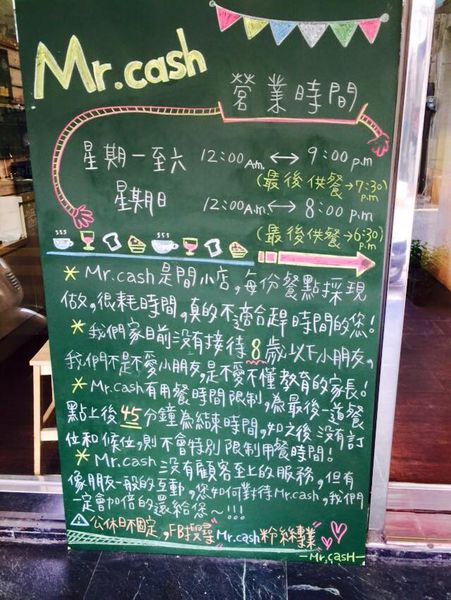 Mr.cash
營業時間
星期一至六 12:00 A.m. ↔ 9:00 p.m
(最後供餐→7:30 p.m
星期日 12:00 A.m. ↔ 8:00 p.m
(最後供餐→6:30 p.m
* Mr.cash是間小店,每份餐點採現
做,很耗時間,真的不適合趕時間的您!
* 我們家目前沒有接待8歲以下小朋友,
我們不是不愛小朋友,是不愛不懂教育的家長!
* Mr.cash有用餐時間限制,為最後一道餐
點上後45分鐘為結束時間,如之後沒有訂
位和候位,則不會特別限制用餐時間!
* Mr.cash沒有顧客至上的服務,但有
像朋友一般的互動,您如何對待Mr.cash,我們
一定會加倍的還給您~!!!
公休日不固定,FB搜尋Mr.cash粉絲專業
-Mr.casH-